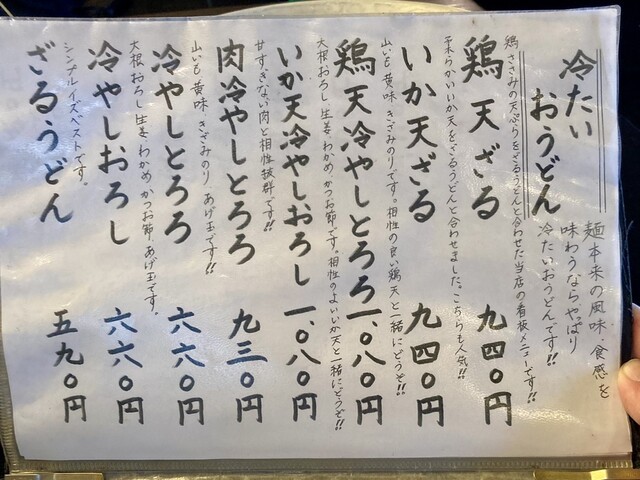 冷たい
おうどん
麺本来の風味・食感を
味わうならやっぱり
冷たいおうどんです!!
鶏ささみの天ぷらをざるうどんと合わせた当店の看板メニューです!!
鶏天ざる 九四〇円
柔らかいいか天をざるうどんと合わせました。こちらも人気!!
いか天ざる 九四〇円
山いも 黄味 きざみのりです。相性の良い鶏天と一緒にどうぞ!!
鶏天冷やしとろろ 一、〇八〇円
大根おろし 生姜 わかめ かつお節です。相性のよいいか天と一緒にどうぞ!!
いか天冷やしおろし 一、〇八〇円
甘すぎない肉と相性抜群です!!
肉冷やしとろろ 九三〇円
山いも 黄味 きざみのり あげ玉です!!
冷やしとろろ 六六〇円
大根おろし 生姜 わかめ かつお節 あげ玉です。
冷やしおろし 六六〇円
シンプルイズベストです。
ざるうどん 五九〇円